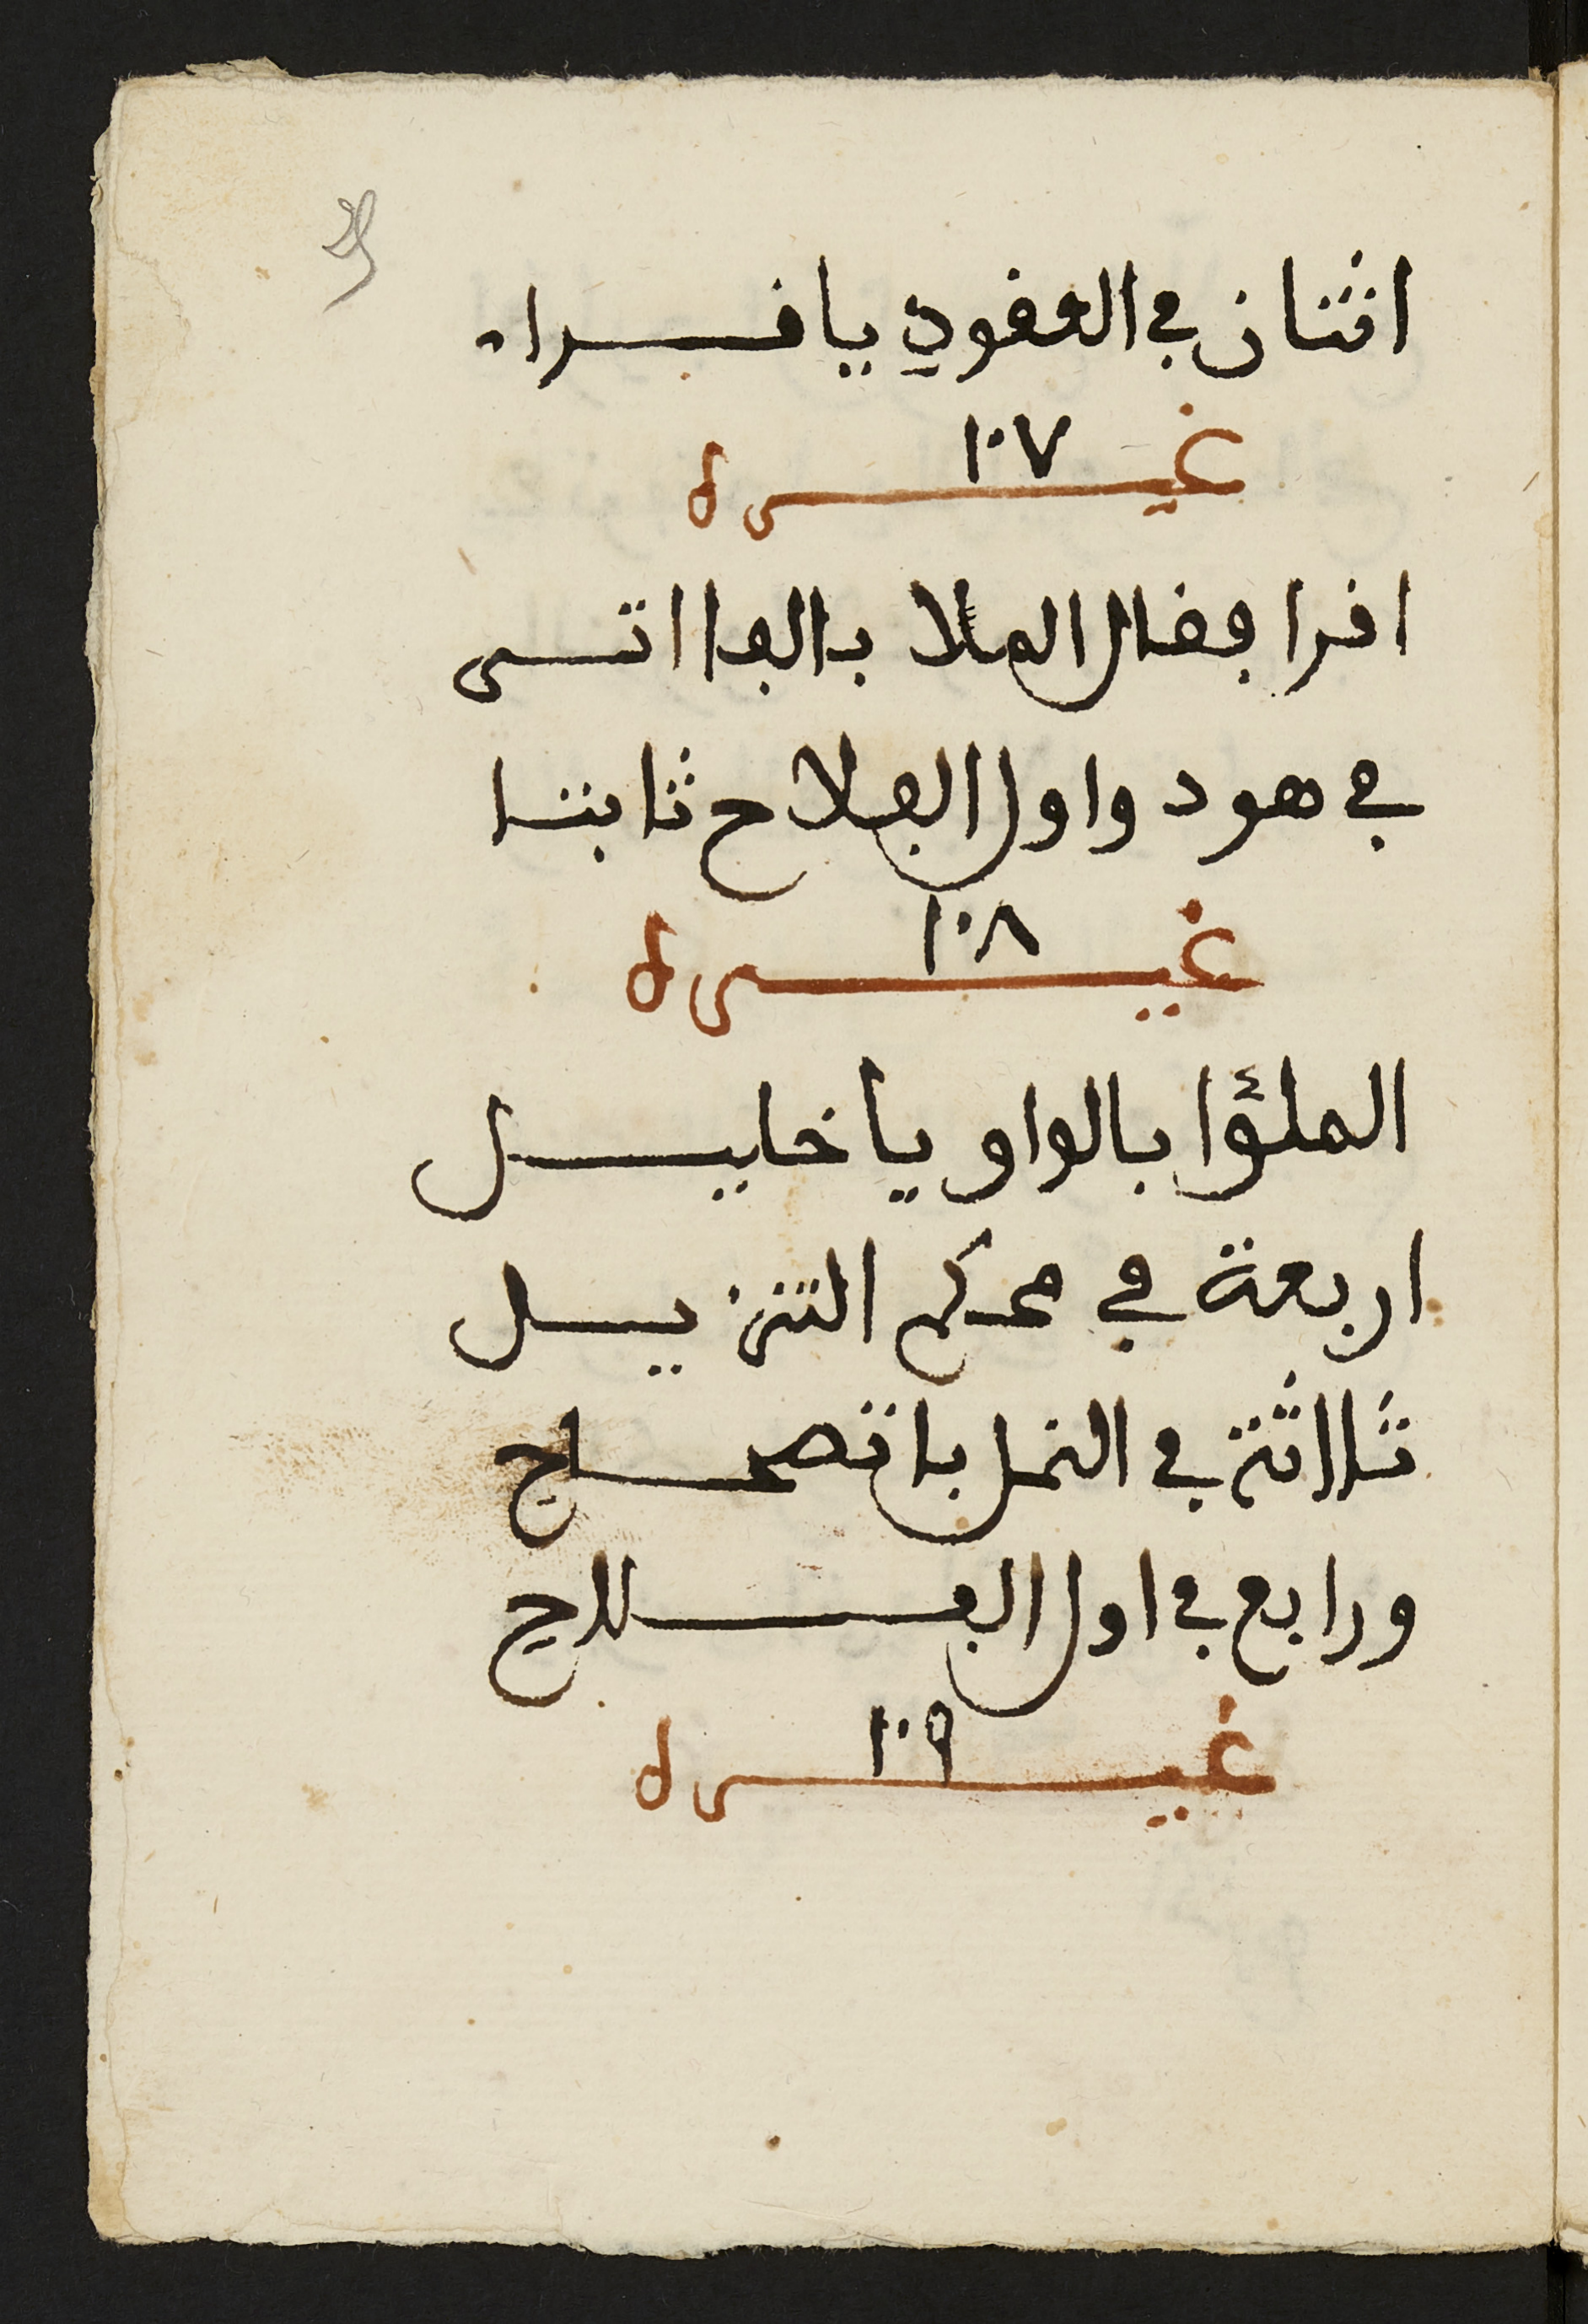 اثنان في العقود يا قراء
غيره ١٠٧
اقرا فقال الملا بالفا اتى
في هود واول الفلاح ثابتا
غيره ١٠٨
الملؤا بالواو يا خليل
اربعة في محكم التنزيل
ثلاثة في النمل باتصاح
ورابع في اول الفلاح
غيره ١٠٩